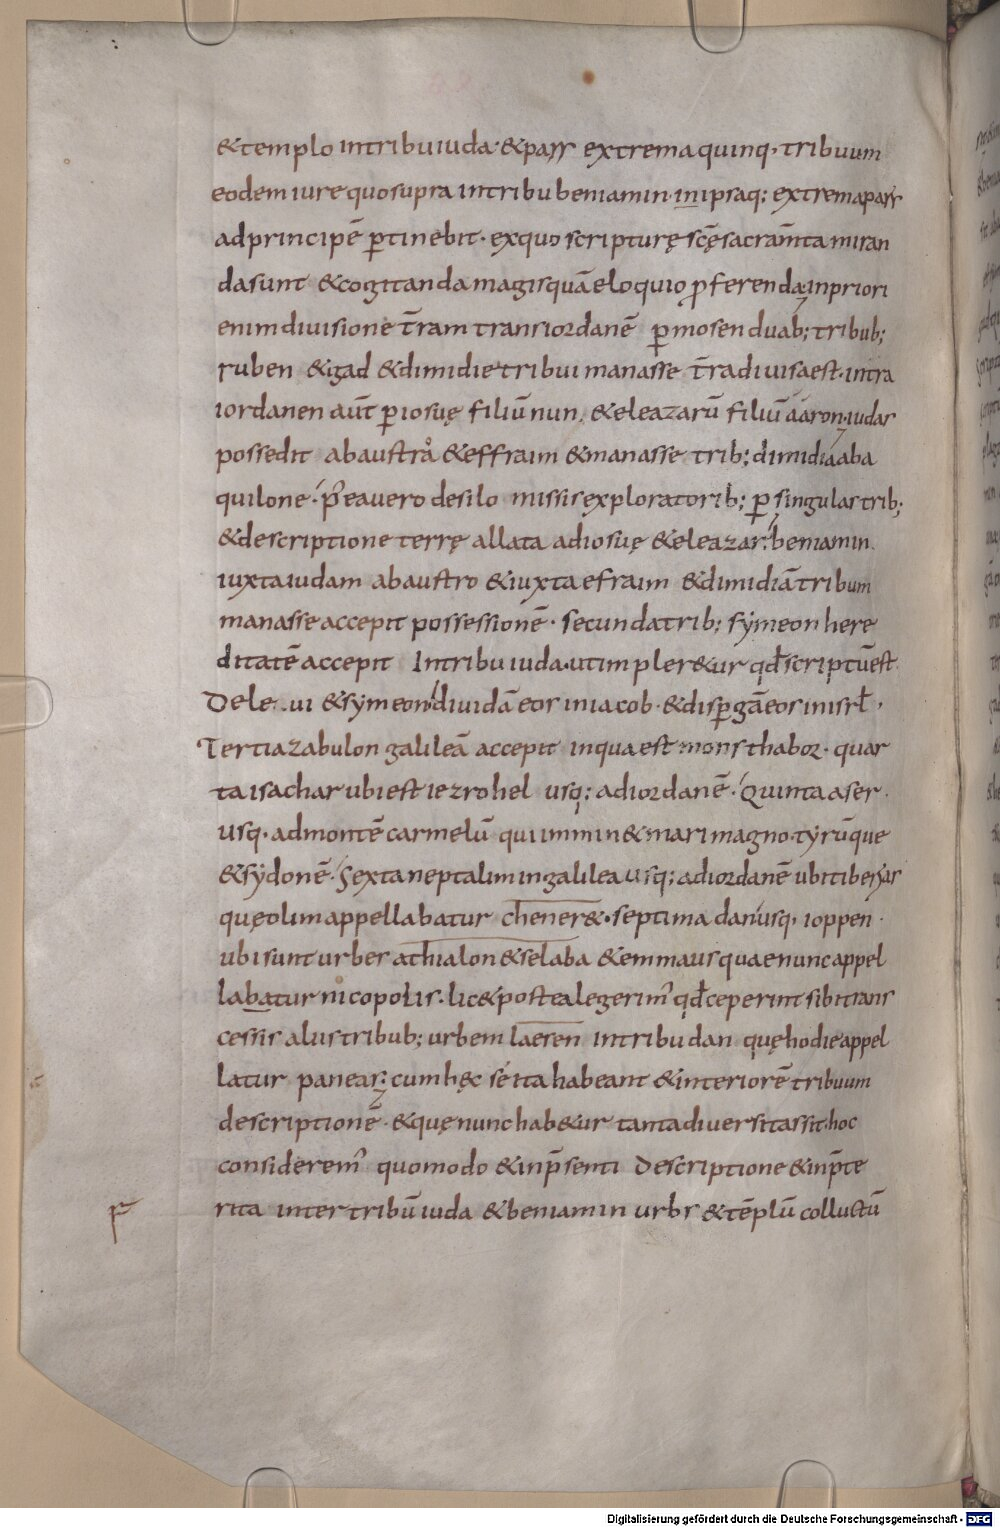 & templo in tribu iuda · & pars extrema quinq· tribuum
eodem iure quo supra in tribu beniamin · in ipsaq; extrema pars
ad principē ꝑtinebit · ex quo scripturę scę̄ sacram̄ta miran
da sunt & cogitanda magis quā eloquio ꝓferenda; in priori
enim diuisione t̄ram trans iordanē ꝑ mosen duab; tribub;
ruben & gad & dimidie tribui manasse t̄ra diuisa est · intra
iordanen aūt ꝑ iosuę filiū nun, & eleazarū filiū aaron · iudas
possedit ab austro & effraim & manasse trib; dimidia ab a
quilone · p̄ea uero de silo missis exploratorib; ꝑ singulas trib;
& descriptione terrę allata ad iosuę & eleazar; beniamin
iuxta iudam ab austro & iuxta efraim & dimidiā tribum
manasse accepit possessionē · secunda trib; symeon here
ditatē accepit In tribu iuda · ut impler&ur qd̄ scriptū est
De leui & symeon diuidā eos in iacob · & dispgā eos in isrł ·
Tertia zabulon galileā accepit in qua est mons thabor · quar
ta isachar ubi est iezrohel usq; ad iordanē · Quinta aser
usq· ad montē carmelū qui immin& mari magno · tyrūque
& sydonē · Sexta neptalim in galilea usq; ad iordanē ubi tiberias
quę olim appellabatur chener& · septima dan usq· ioppen ·
ubi sunt urbes athialon & selaba & emmaus quae nunc appel
labatur nicopolis · lic& postea legerim' qd̄ ceperint sibi trans
cessis aliis tribub; urbem laesen in tribu dan quę hodie appel
latur paneas; cum hęc se ita habeant & interiorē tribuum
descriptionē · & quę nunc hab&ur tanta diuersitas sit · hoc
considerem' quomodo & in p̄senti descriptione & in p̄te
rita inter tribū iuda & beniamin urbs & tēplū collustū